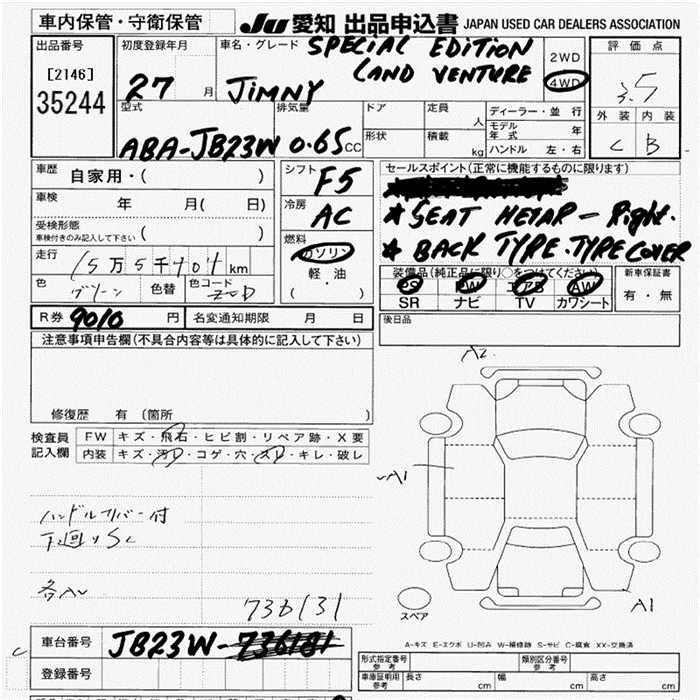 車内保管・守衛保管
Ju 愛知 出品申込書 JAPAN USED CAR DEALERS ASSOCIATION
出品番号
[2146]
35244
初度登録年月
27 月
車名・グレード SPECIAL EDITION
LAND VENTURE
JIMNY
2WD
4WD
評価点
3.5
外装 内装
C B
型式
ABA-JB23W
排気量
0.65 CC
ドア
定員
人
形状
積載
kg
ディーラー・並行
モデル年式 年
ハンドル 左・右
車歴
自家用・( )
車検
年 月( 日)
受検形態
車検付きのみ記入して下さい ( )
走行
15万5千404km
色 グリーン 色替 色コード ZCD
シフト F5
冷房 AC
燃料
ガソリン
軽・油
( ・ )
セールスポイント(正常に機能するものに限ります)
* SEAT HETAR - Right.
* BACK TYPE. TYPE COVER
装備品(純正品に限り○をつけてください)
PS PW エアB AW
SR ナビ TV カワシート
新車保証書
有・無
R券 9010 円 名変通知期限 月 日
後日品
注意事項申告欄(不具合内容等は具体的に記入して下さい)
修復歴 有 (箇所 )
検査員記入欄
FW キズ・飛石・ヒビ割・リペア跡・X要
内装 キズ・汚レ・コゲ・穴・スレ・キレ・破レ
ハンドルカバー付
下廻りSC
各AU
736131
A2
A1
A1
スペア
A-キズ E-エクボ U-凹み W-補修跡 S-サビ C-腐食 XX-交換済
C
車台番号 JB23W-
登録番号
形式指定番号 参考
類別区分番号 参考
車庫証明用 参考
長さ cm 幅 cm 高さ cm